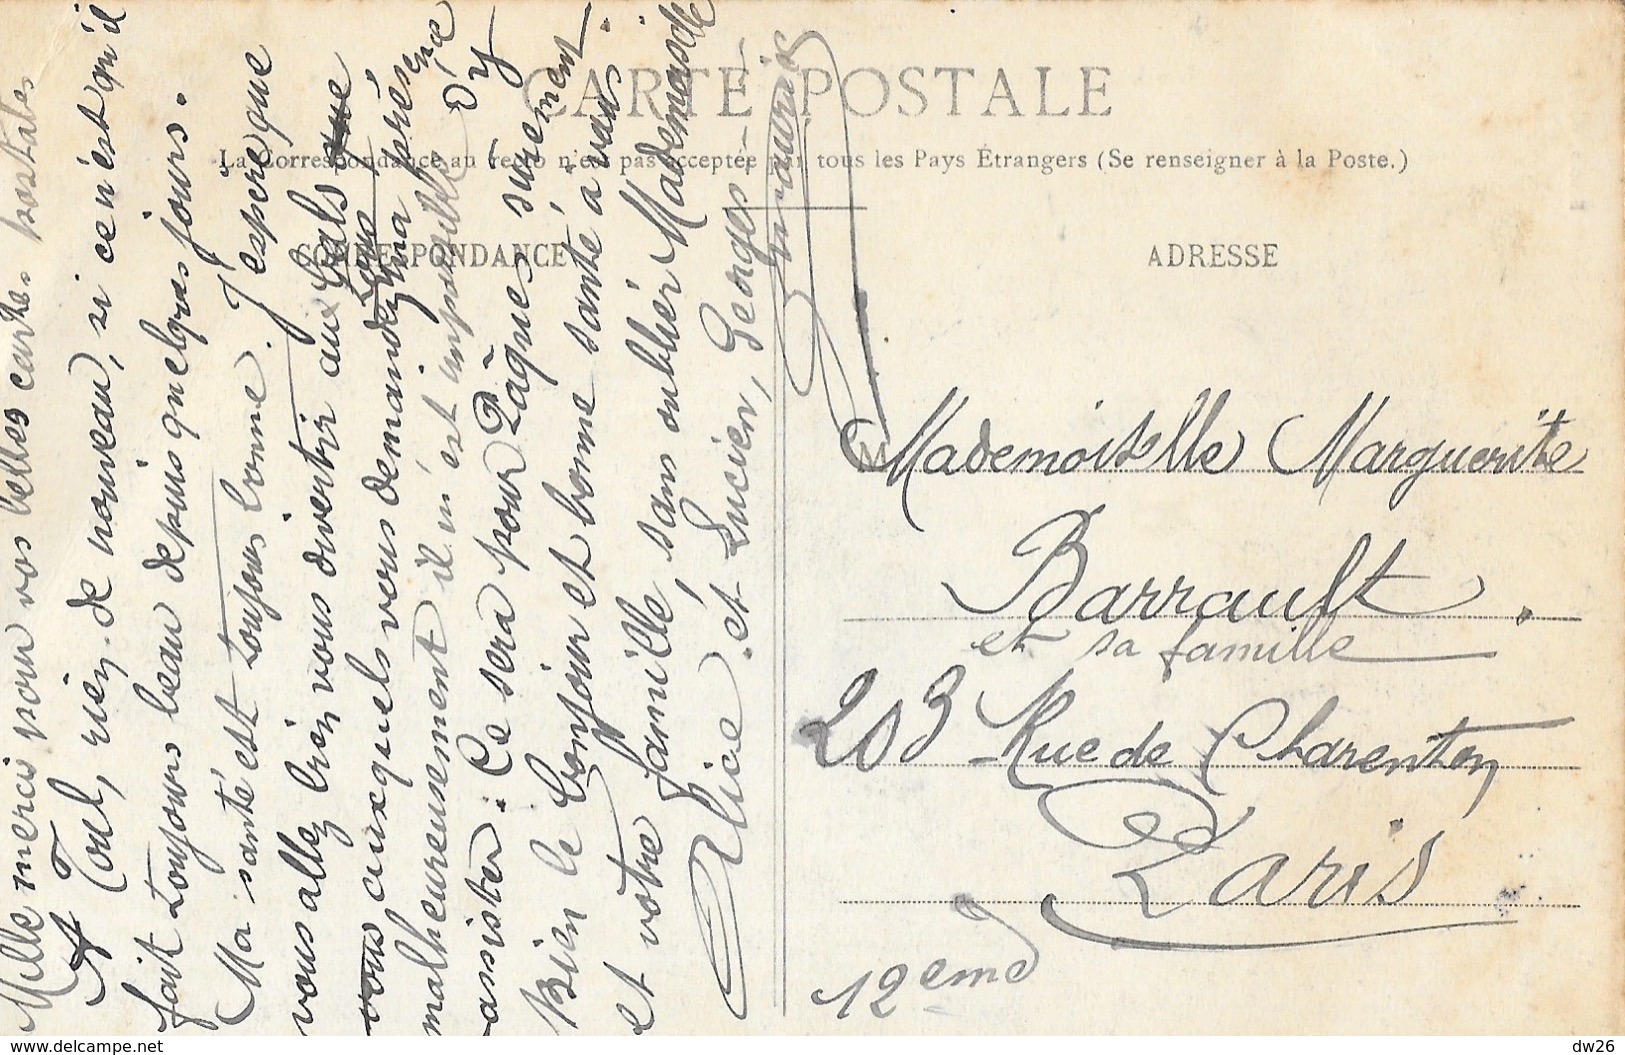 CARTE POSTALE
La Correspondance au recto n'est pas acceptée par tous les Pays Étrangers (Se renseigner à la Poste.)
CORRESPONDANCE
Mille merci pour vos belles cartes postales
A Toul, rien de nouveau, si ce n'est qu'il
fait toujours beau depuis quelques jours.
Ma santé est toujours bonne. J'espère que
vous allez bien vous divertir aux bals
vous auxquels vous demandez ma présence
malheureusement il m'est impossible d'y
assister. Ce sera pour Pâques sûrement.
Bien le bonjour et bonne santé à vous
et votre famille, sans oublier Mademoiselle
Alice et Lucien, Georges
ADRESSE
Mademoiselle Marguerite
Barrault.
et sa famille
203 Rue de Charenton
Paris
12eme
www.delcampe.net
dw26